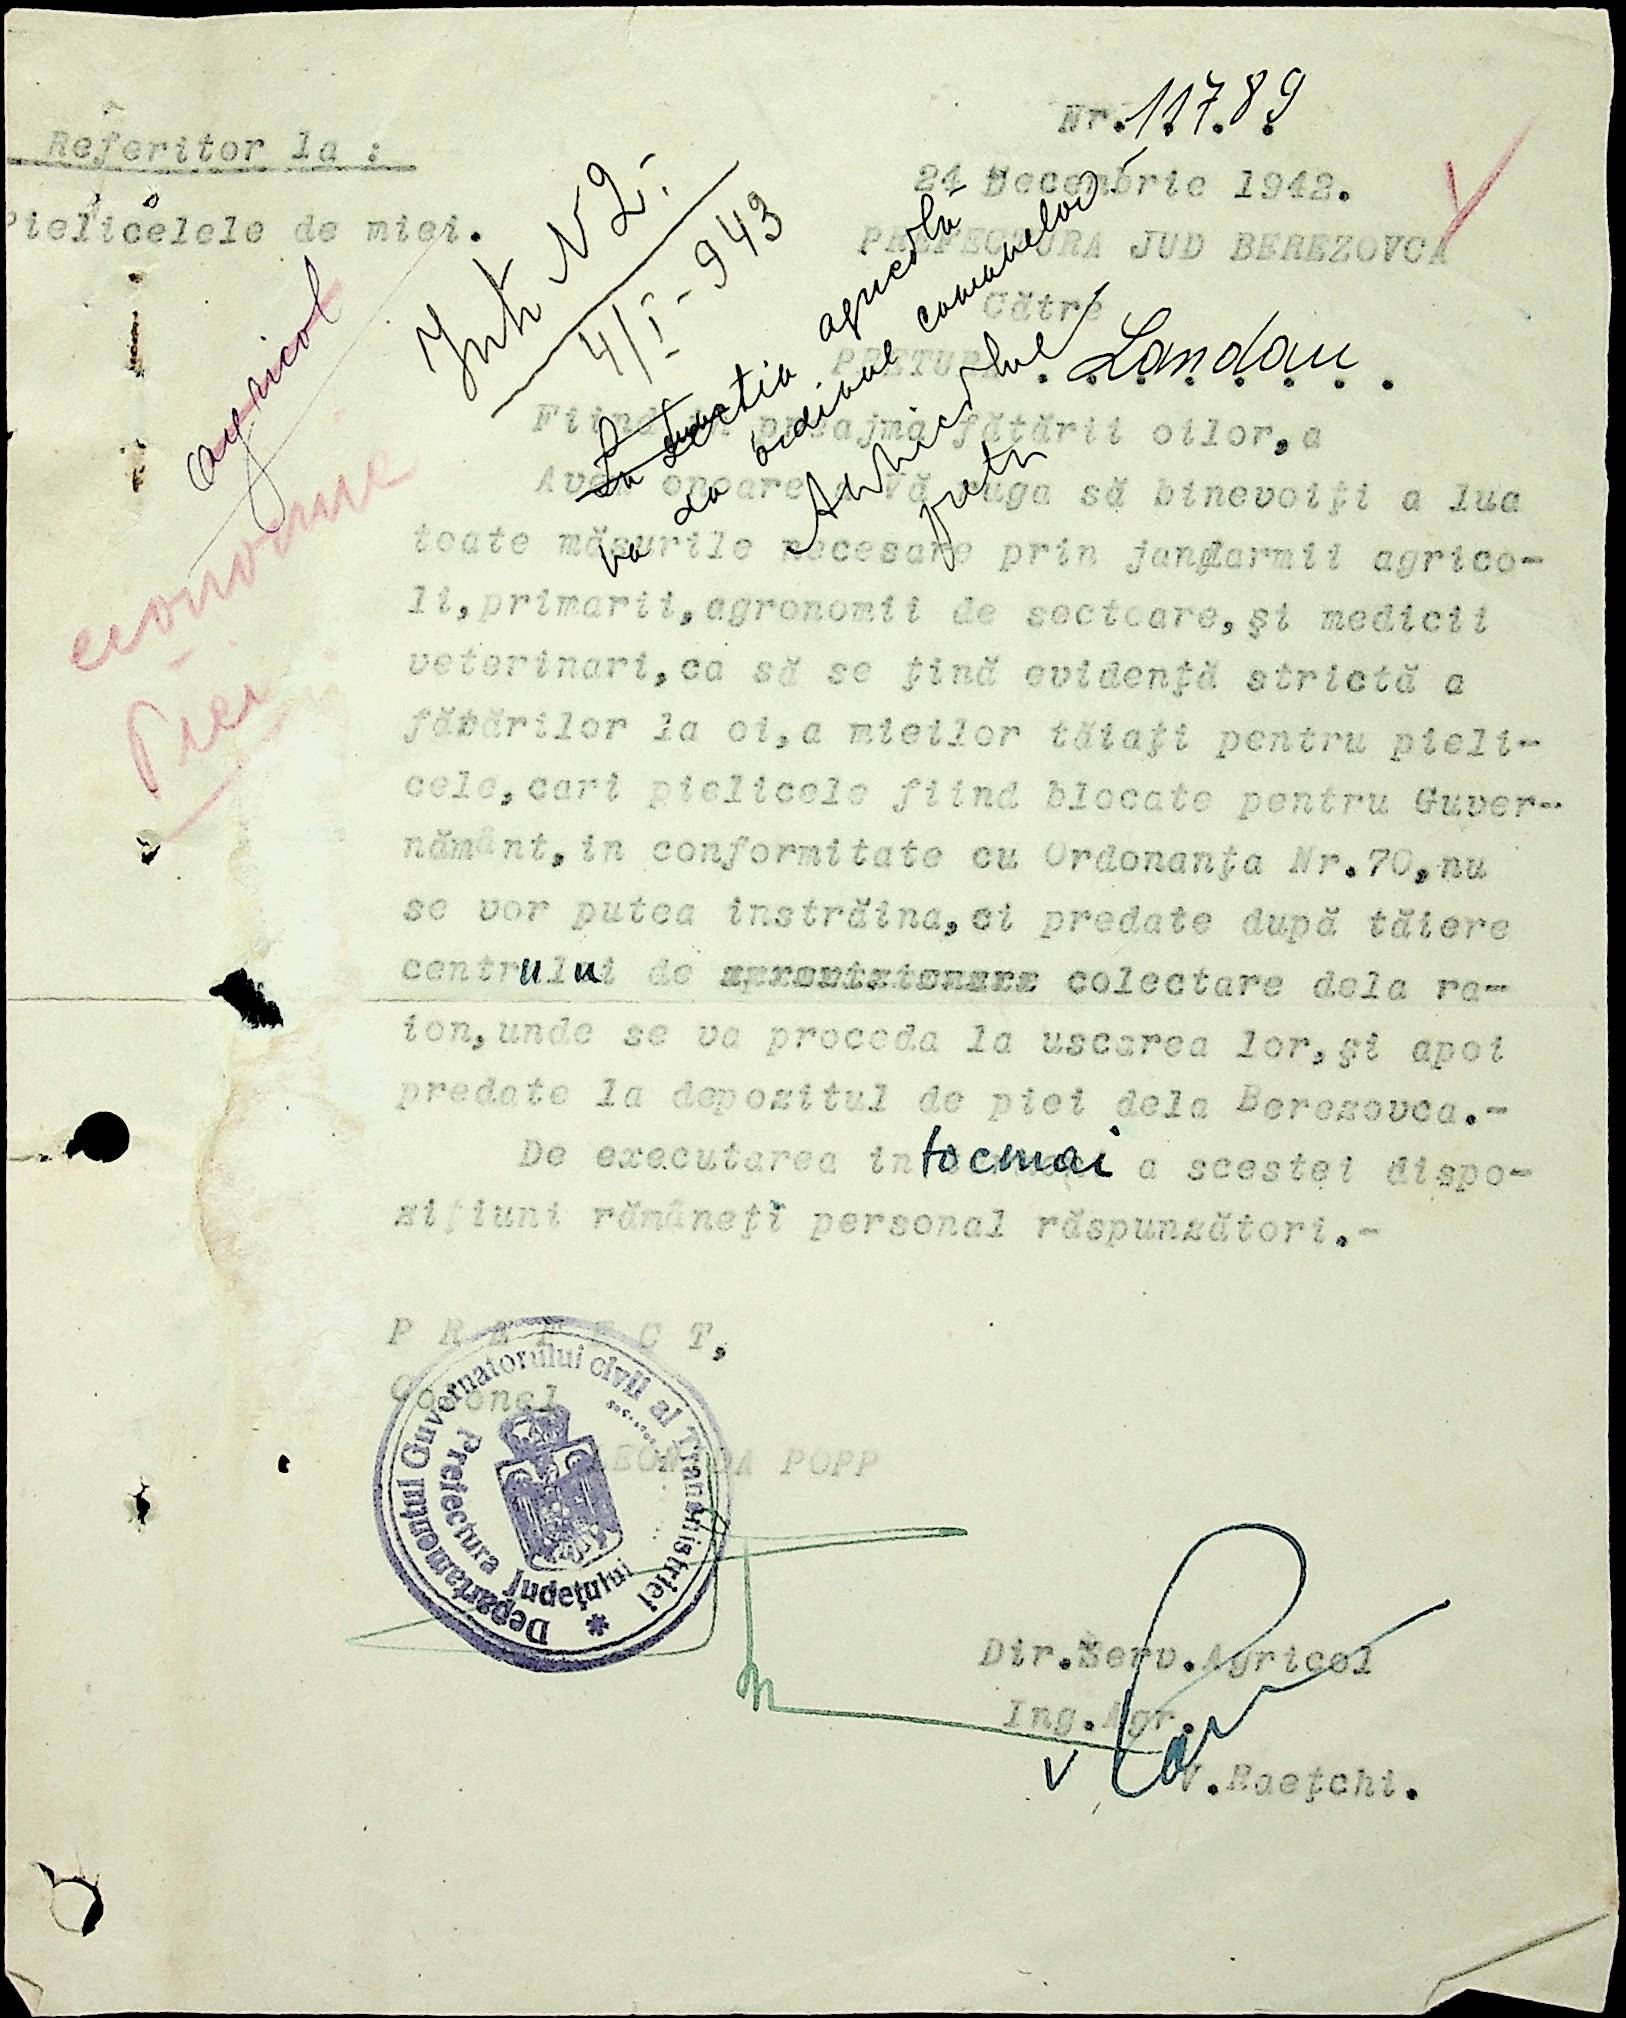 Nr.11789
Referitor la :
24 Decembrie 1942.
Pielicelele de miei.
PREFECTURA JUD BEREZOVCA
Către
PRETURA Landau
Int N 2.
4/I-943
agricol
economic
Piei
La Secția agricolă
va da ordinul comunelor
Fiind în preajma fătării oilor,a
Avem onoare a Vă ruga să binevoiţi a lua
toate măsurile necesare prin jandarmii agrico-
li,primarii,agronomii de sectoare,şi medicii
veterinari,ca să se ţină evidenţă strictă a
fătărilor la oi,a mieilor tăiaţi pentru pieli-
cele,cari pielicele fiind blocate pentru Guver-
nământ,in conformitate cu Ordonanţa Nr.70,nu
se vor putea instrăina,ci predate după tăiere
centrului de colectare dela ra-
ion,unde se va proceda la uscarea lor,şi apoi
predate la depozitul de piei dela Berezovca.-
De executarea intocmai a scestei dispo-
ziţiuni rămâneţi personal răspunzători.-
P R E F E C T,
Colonel
LEONIDA POPP
Departamentul Guvernatorului civil al Transnistriei
Prefectura Judeţului
Dir.Serv.Agricol
Ing.Agr.
V.Raeţchi.